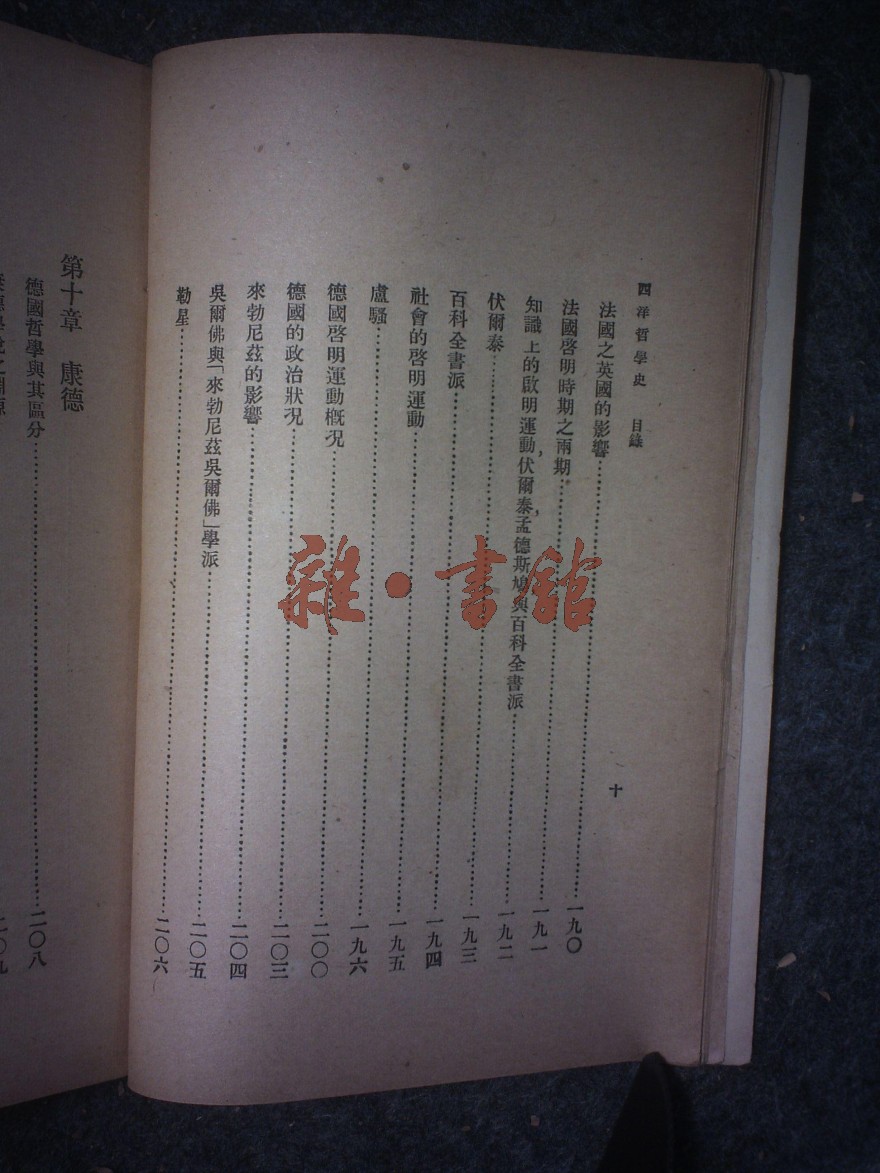 西洋哲學史 目錄
十
法國之英國的影響……一九〇
法國啓明時期之兩期……一九一
知識上的啟明運動,伏爾泰,孟德斯鳩與百科全書派……一九二
伏爾泰……一九三
百科全書派……一九四
社會的啓明運動……一九五
盧騷……一九六
德國啓明運動概況……二〇〇
德國的政治狀况……二〇三
來勃尼茲的影響……二〇四
吳爾佛與「來勃尼茲吳爾佛」學派……二〇五
勒星……二〇六
第十章 康德
德國哲學與其區分……二〇八
二〇九
雜·書館